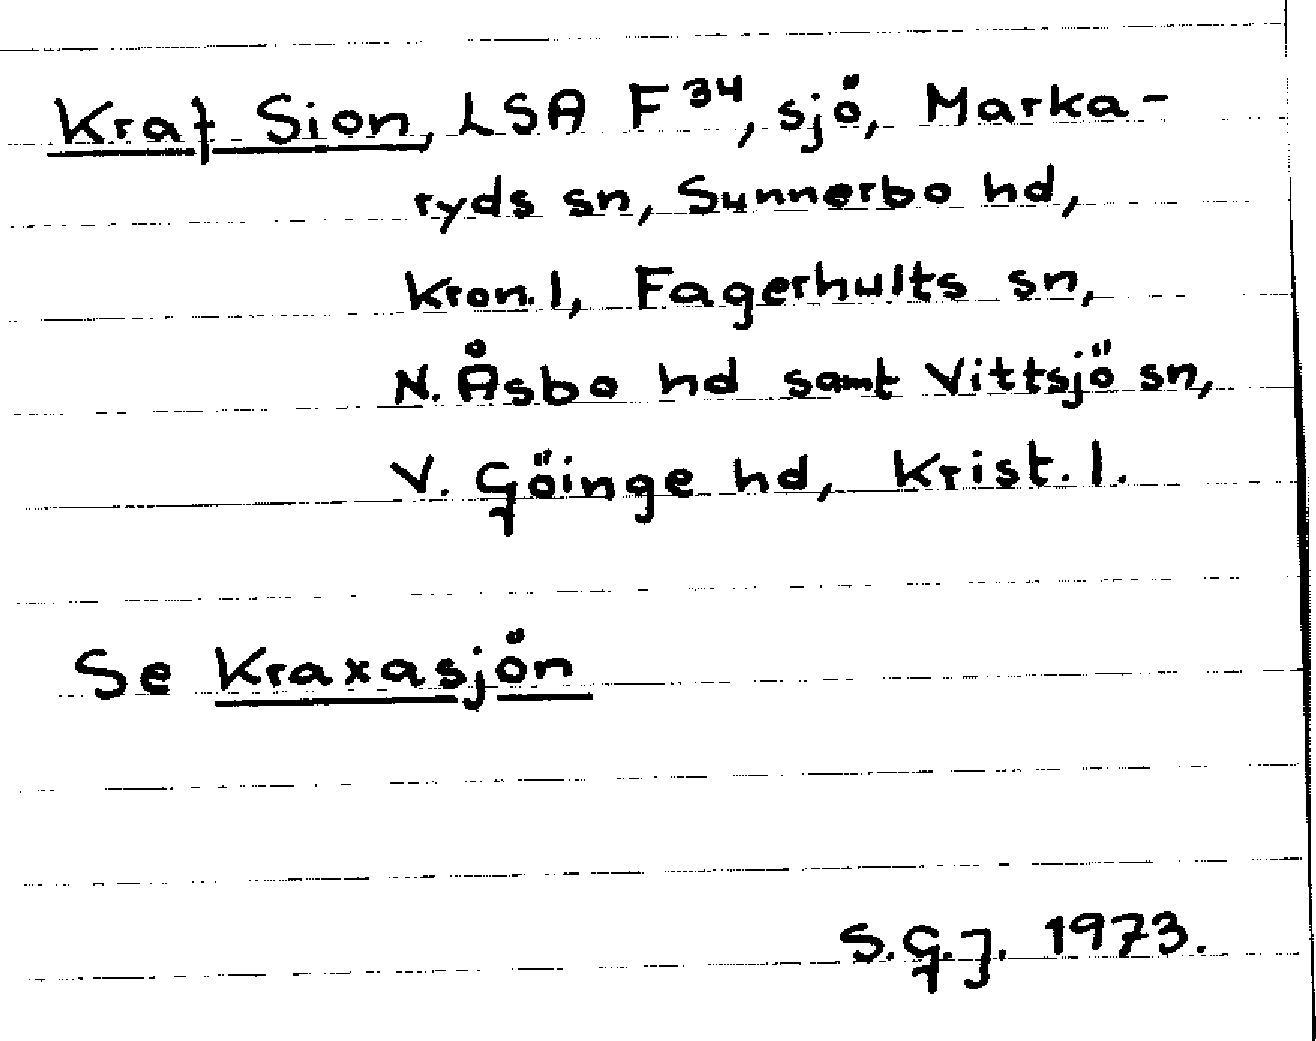 Kraf Sion, LSA F³⁴, sjö, Marka-
ryds sn, Sunnerbo hd,
Kron.l, Fagerhults sn,
N. Åsbo hd samt Vittsjö sn,
V. Göinge hd, Krist. l.
Se Kraxasjön
S.G.J. 1973.